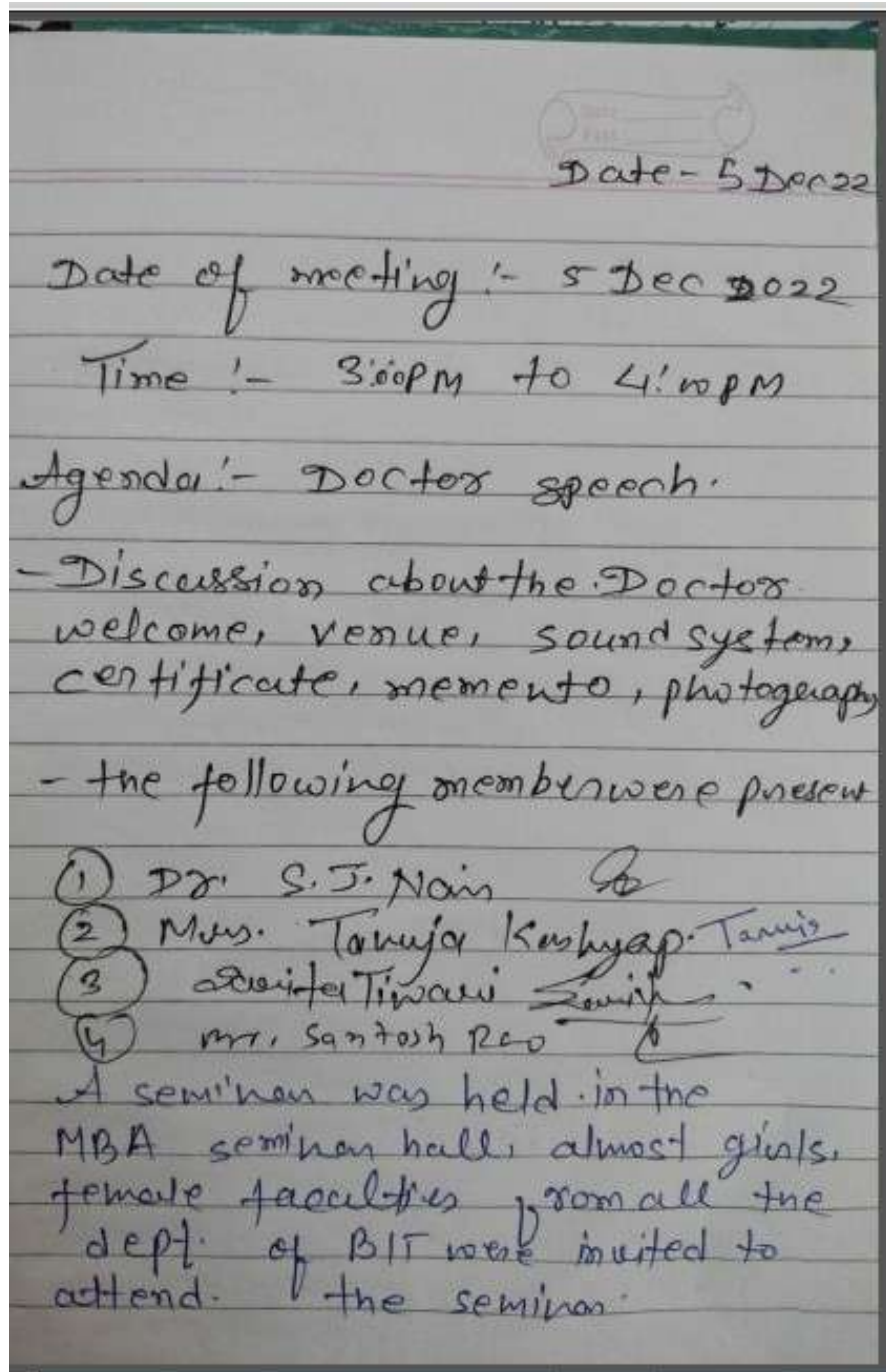 Date
Date - 5 Dec 22
Date of meeting :- 5 Dec 2022
Time :- 3:00PM to 4:00PM
Agenda :- Doctor speech.
- Discussion about the Doctor
welcome, venue, sound system,
certificate, memento, photography
- the following member were present
① Dr. S.J. Nair
② Mrs. Tanuja Kashyap. Tanuja
③ Tiwari
④ mr. Santosh Rao
A seminar was held in the
MBA seminar hall, almost girls,
female faculties from all the
dept. of BIT were invited to
attend. the seminar.